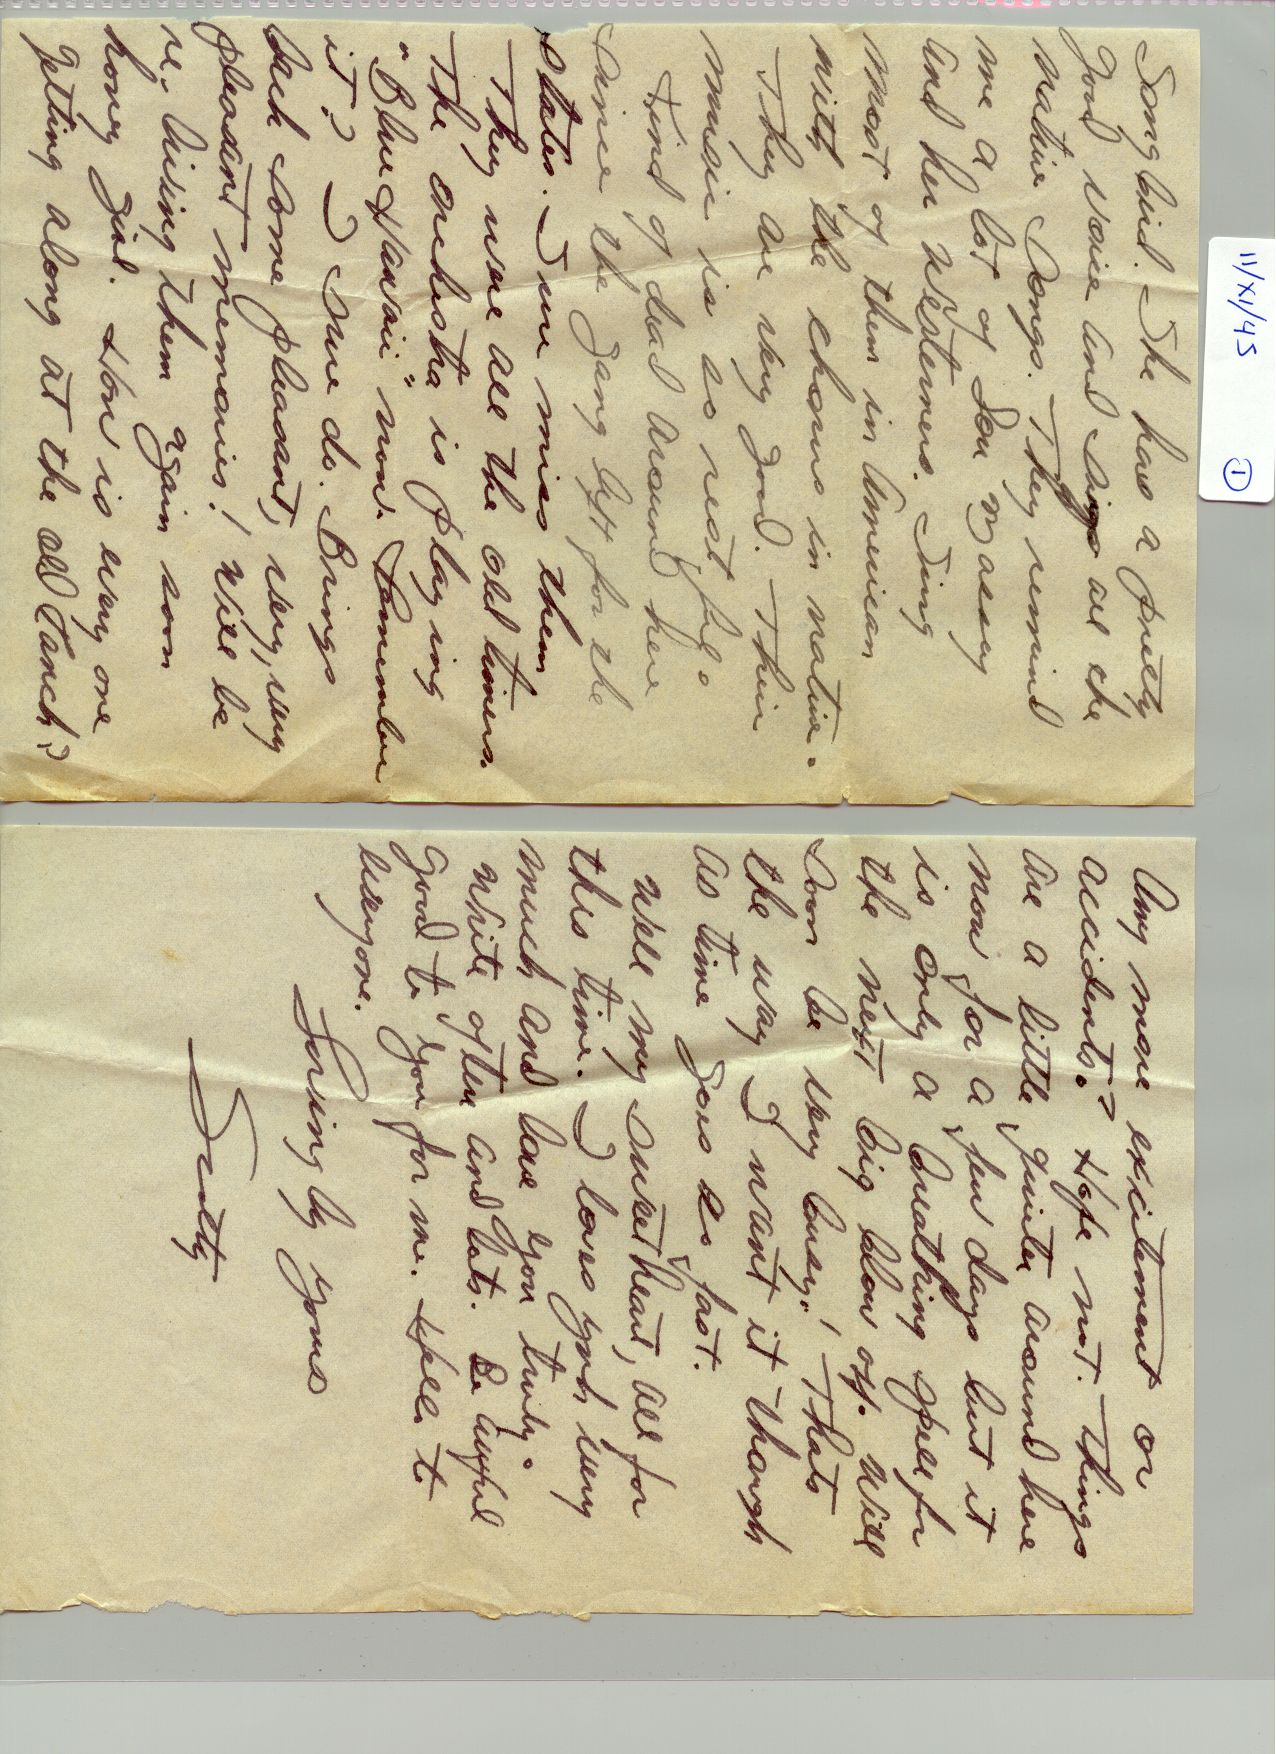 11/XI/45
1
Songbird. She has a pretty
good voice and sings all the
native songs. They remind
me a lot of Lou Massey
and her Westerners. Sing
most of them in American
with the chorus in native.
They are very good. Their
music is so restful.
Kind of dead around here
since the gang left for the
states. Sure miss them
They were all the old timers.
The orchestra is playing
"Blue Hawaii" now. Remember
it? I sure do. Brings
back some pleasant, very, very
pleasant memories! Will be
re-living them again soon
honey girl. How is every one
getting along at the old ranch?
Any more excitement or
accidents? Hope not. Things
are a little quieter around here
now for a few days but it
is only a breathing spell for
the next big blow off. Will
soon be very busy! Thats
the way I want it though
as time goes so fast.
Well my sweetheart, all for
this time. I loves yoh very
much and love you truly.
Write often and lots. Be awful
good to you for me. Hello to
everyone.
Loving by yours
Scotty